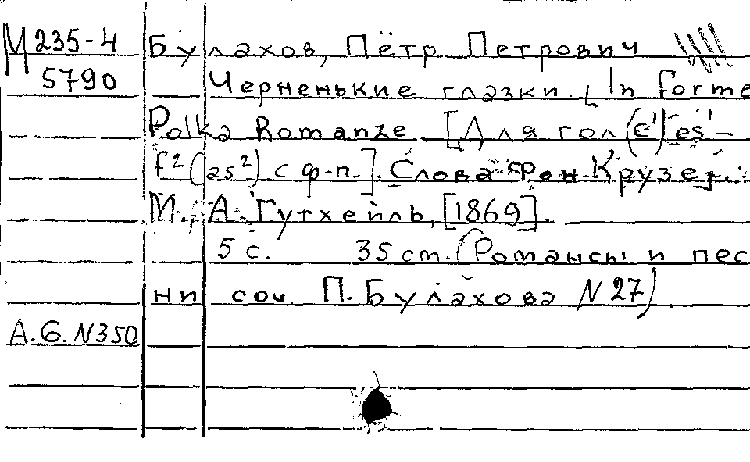 М 235-4 Булахов, Пётр Петрович
5790 Черненькие глазки. [In forme
Polka Romanze. [Для гол. (c¹) es¹-
f² (as²) с ф-п.]. Слова фон Крузе.
М., А. Гутхейль, [1869].
5 с. 35 cm. (Романсы и пес
ни соч. П. Булахова N 27)
А.Б. N350